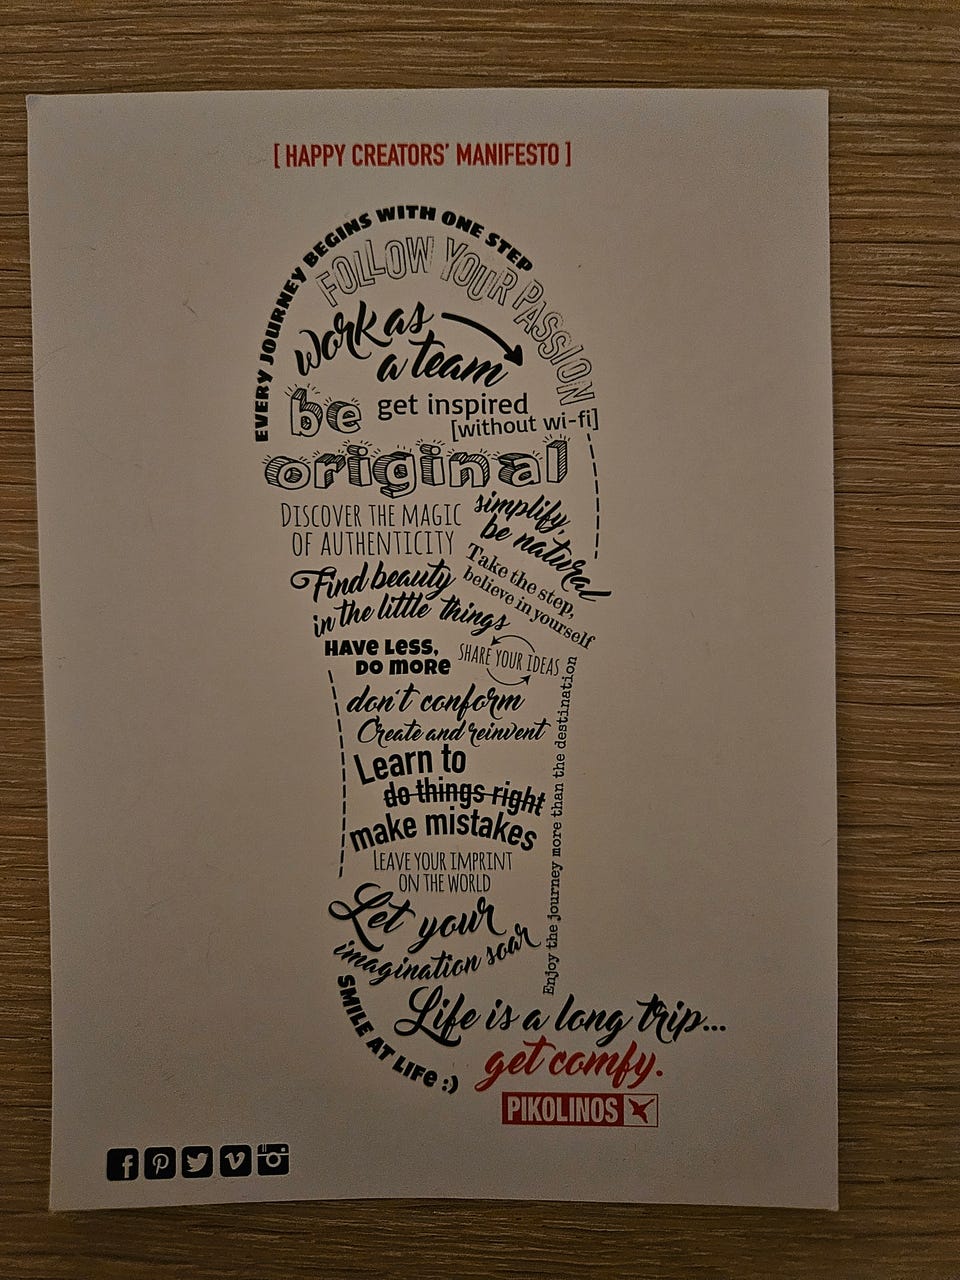 [ HAPPY CREATORS' MANIFESTO ]
EVERY JOURNEY BEGINS WITH ONE STEP
FOLLOW YOUR PASSION
work as
a team
be
get inspired
[without wi-fi]
original
DISCOVER THE MAGIC
OF AUTHENTICITY
simplify,
be natural
Take the step,
believe in yourself
Find beauty
in the little things
HAVE LESS,
DO MORE
SHARE YOUR IDEAS
don't conform
Create and reinvent
Learn to
do things right
make mistakes
Enjoy the journey more than the destination
LEAVE YOUR IMPRINT
ON THE WORLD
Let your
imagination soar
SMILE AT LIFE :)
Life is a long trip...
get comfy.
PIKOLINOS